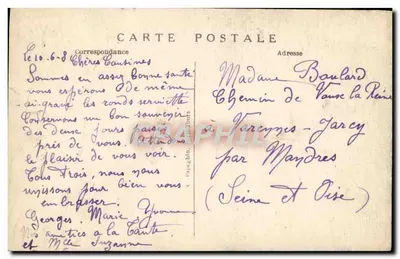 CARTE POSTALE
Correspondance
Adresse
le 10-6-8 Chères Cousines
Sommes en assez bonne santé
vous espérons de même
ai-grané les ronds serviette
Conservons un bon souvenir
des deux jours
près de vous. Attendons
le plaisir de vous voir.
Tous trois, nous nous
unissons pour bien vous
embrasser.
Georges. Marie. Yvonne
amitiés à la Tante
et Melle Suzanne
Madame Boulard
Chemin de Vaux la Reine
à Varennes-Jarcy
par Mandres
(Seine et Oise)